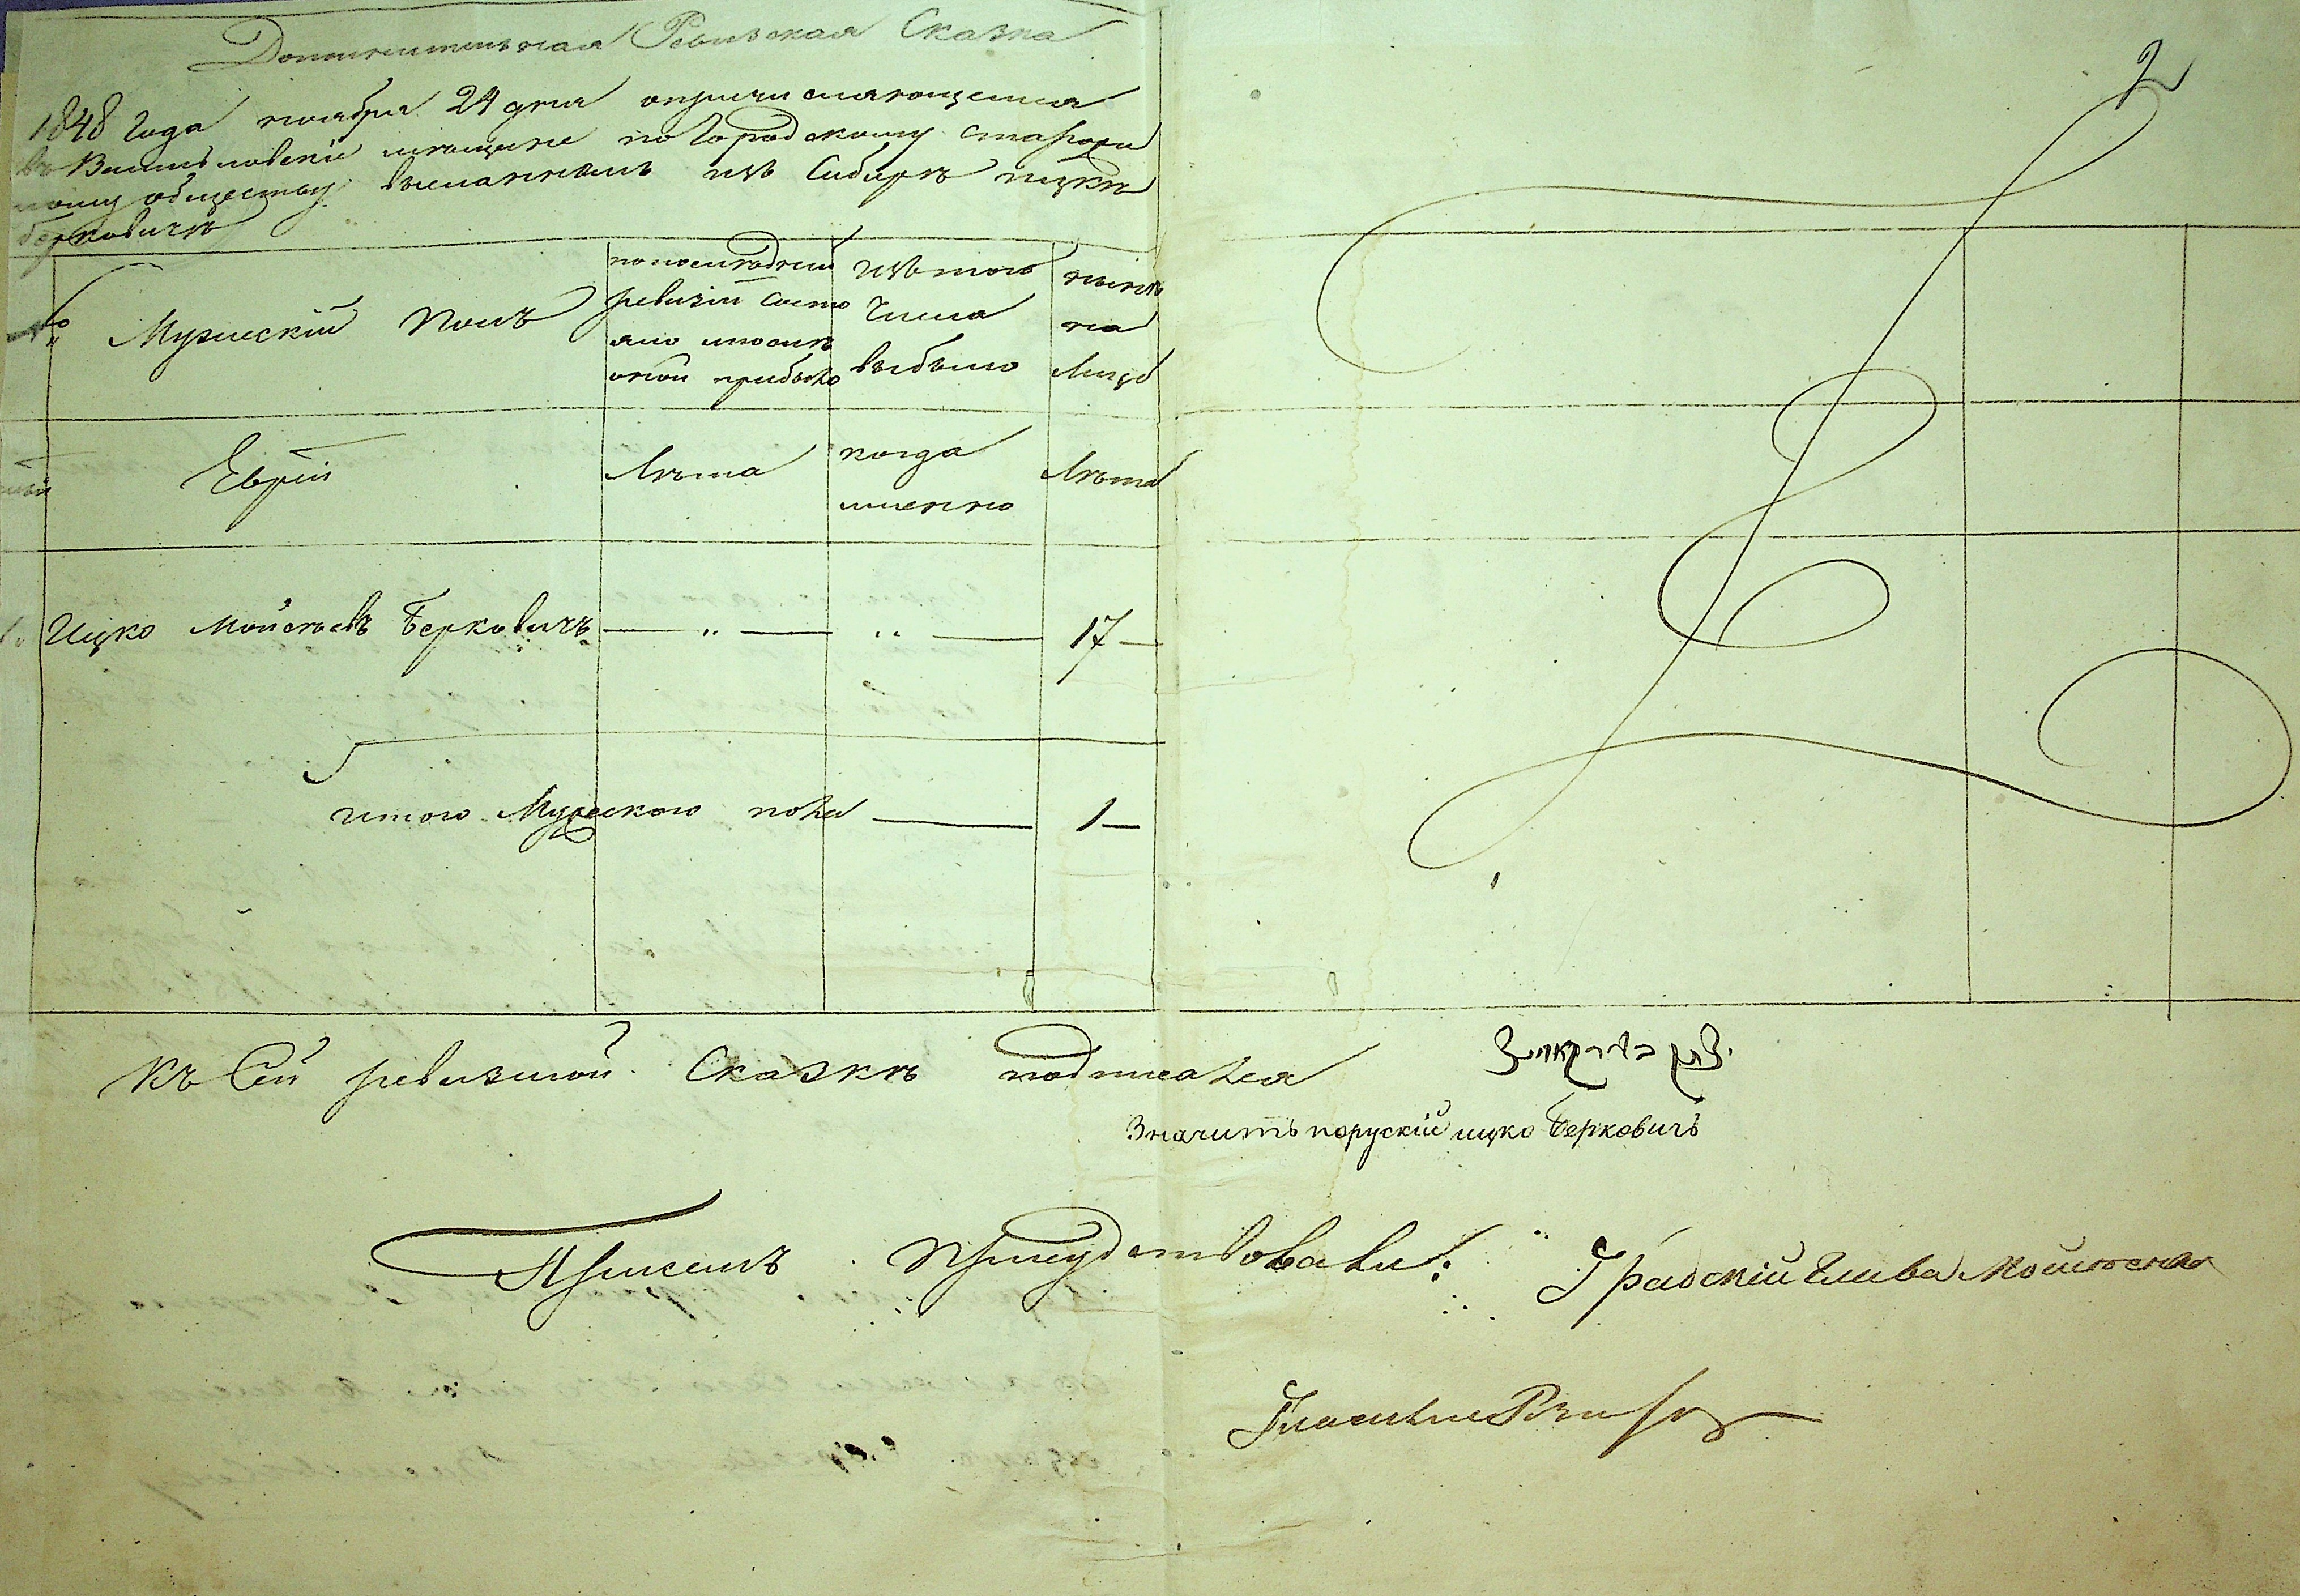 Дополнительная Ревизская Сказка
2
1848 Года ноября 24 дня о причисляющемся
въ мещане по Городскому
обществу высланнымъ изъ Сибирѣ Ицкѣ
Берковичѣ
№ Мужескій Полъ
по последней ревизіи состояло и после оной прибыло
изъ того Числа выбыло
нынѣ на Лицо
Еврей
Лѣта
когда именно
Лѣта
1. Ицко Мойсѣевъ Берковичъ — " — " — 17 —
итого Мужеского пола — 1 —
Къ Сей ревизкой Сказкѣ подписался
Значитъ порускій ицко Берковичъ
При семъ Присудствовали:
Градскій Глава